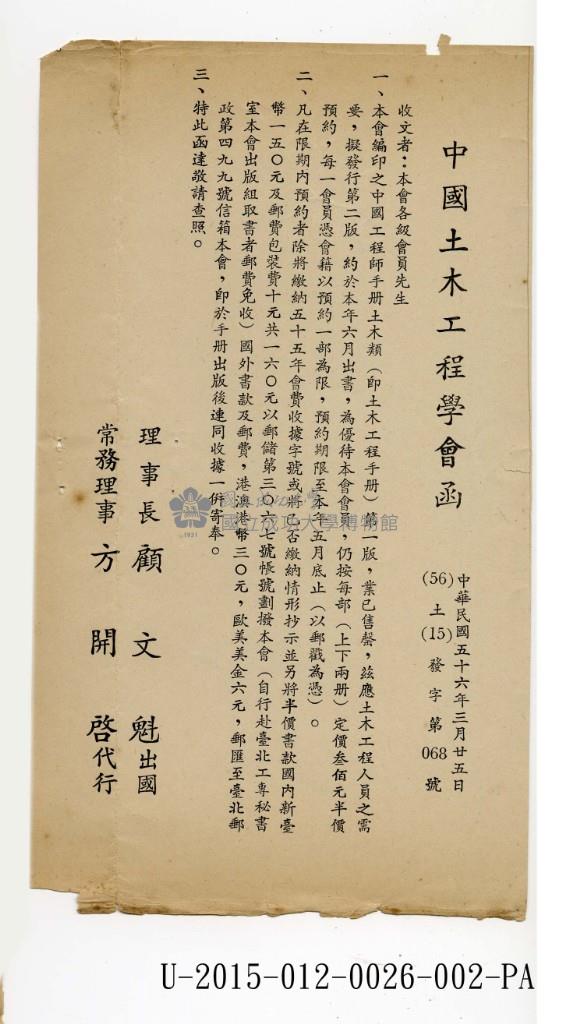 中國土木工程學會函
中華民國五十六年三月廿五日
(56)土(15)發字第068號
收文者：本會各級會員先生
一、本會編印之中國工程師手册土木類（即土木工程手册）第一版，業已售罄，茲應土木工程人員之需
要，擬發行第二版，約於本年六月出書，為優待本會會員，仍按每部（上下兩册）定價叁佰元半價
預約，每一會員憑會籍以預約一部為限，預約期限至本年五月底止（以郵戳為憑）。
二、凡在限期內預約者除將繳納五十五年會費收據字號或將已否繳納情形抄示並另將半價書款國內新臺
幣一五〇元及郵費包裝費十元共一六〇元以郵儲第三〇六七號帳號劃撥本會（自行赴臺北工專秘書
室本會出版組取書者郵費免收）國外書款及郵費，港澳港幣三〇元，歐美美金六元，郵匯至臺北郵
政第四九九號信箱本會，即於手册出版後連同收據一併寄奉。
三、特此函達敬請查照。
理事長顧文魁出國
常務理事方開啓代行
國立成功大學
國立成功大學博物館
1931
U-2015-012-0026-002-PA